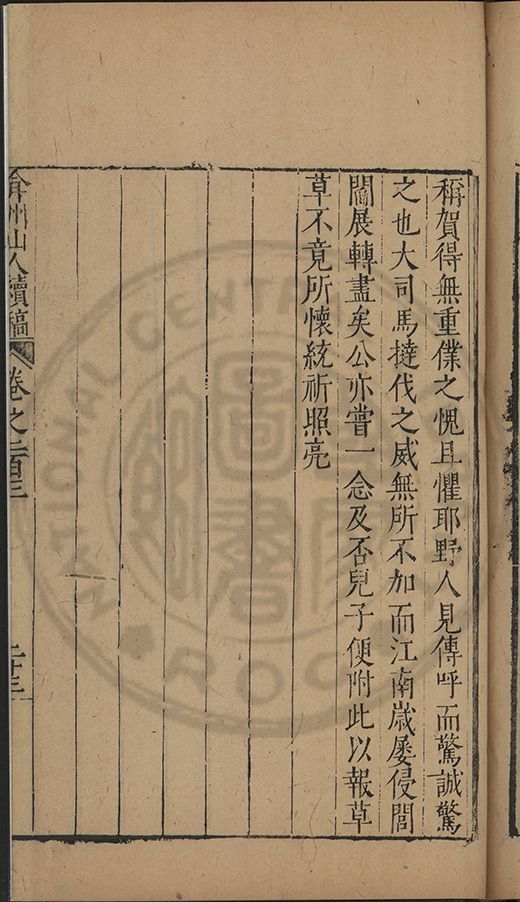 稱賀得無重僕之愧且懼耶野人見傳呼而驚誠驚
之也大司馬撻伐之威無所不加而江南歲屡侵閭
閻展轉盡矣公亦嘗一念及否兒子便附此以報草
草不竟所懷統祈照亮
弇州山人續稿 卷之二百三 二十三